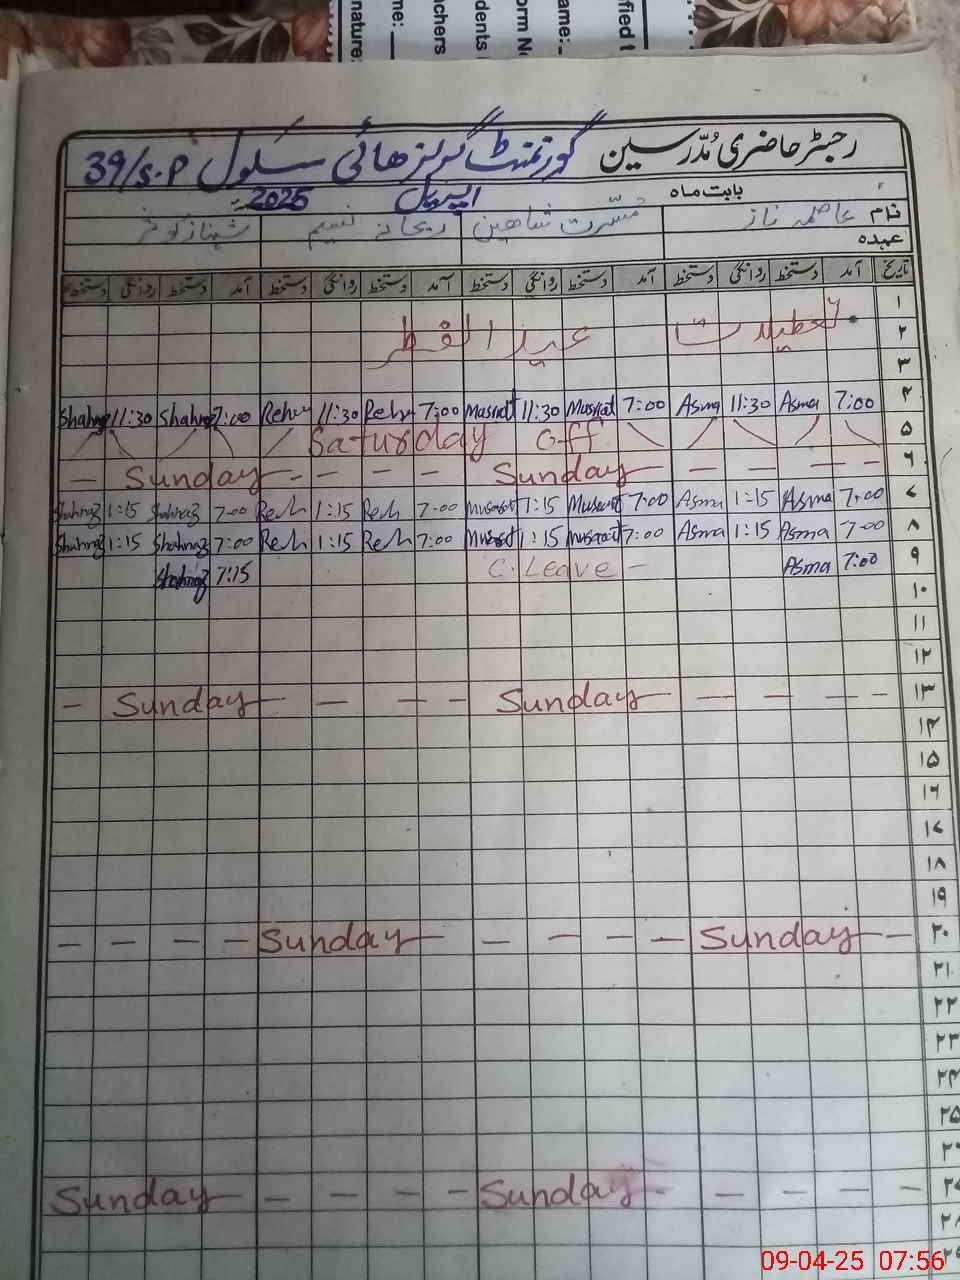 nature:
me:
achers
dents
orm N
ame:
ified t
رجسٹر حاضری مُدّرسین گورنمنٹ گرلز ھائی سکول 39/S.P
بابت ماہ اپریل 2025
نام عاصمہ ناز مُسّرت شاھین ریحانہ نسیم شہناز کوثر
عہدہ
تاریخ آمد دستخط روانگی دستخط آمد دستخط روانگی دستخط آمد دستخط روانگی دستخط آمد دستخط روانگی دستخط
۱
۲ تعطیلات عید الفطر
۳
۴ 7:00 Asma 11:30 Asma 7:00 Masrat 11:30 Masrat 7:00 Reh 11:30 Reh 7:00 Shahnaz 11:30 Shahnaz
۵ Saturday off
۶ — Sunday — - - - Sunday — - - - -
۷ 7:00 Asma 1:15 Asma 7:00 Musarat 1:15 Musarat 7:00 Reh 1:15 Reh 7:00 Shahnaz 1:15 Shahnaz
۸ 7:00 Asma 1:15 Asma 7:00 Musarat 1:15 Musarat 7:00 Reh 1:15 Reh 7:00 Shahnaz 1:15 Shahnaz
۹ 7:00 Asma C. Leave — 7:15 Shahnaz
۱۰
۱۱
۱۲
۱۳ — Sunday — — — — Sunday — — — — —
۱۴
۱۵
۱۶
۱۷
۱۸
۱۹
۲۰ — — — — Sunday — — — — — Sunday — —
۲۱
۲۲
۲۳
۲۴
۲۵
۲۶
۲۷ Sunday — — — — — Sunday — — — — —
۲۸
09-04-25 07:56